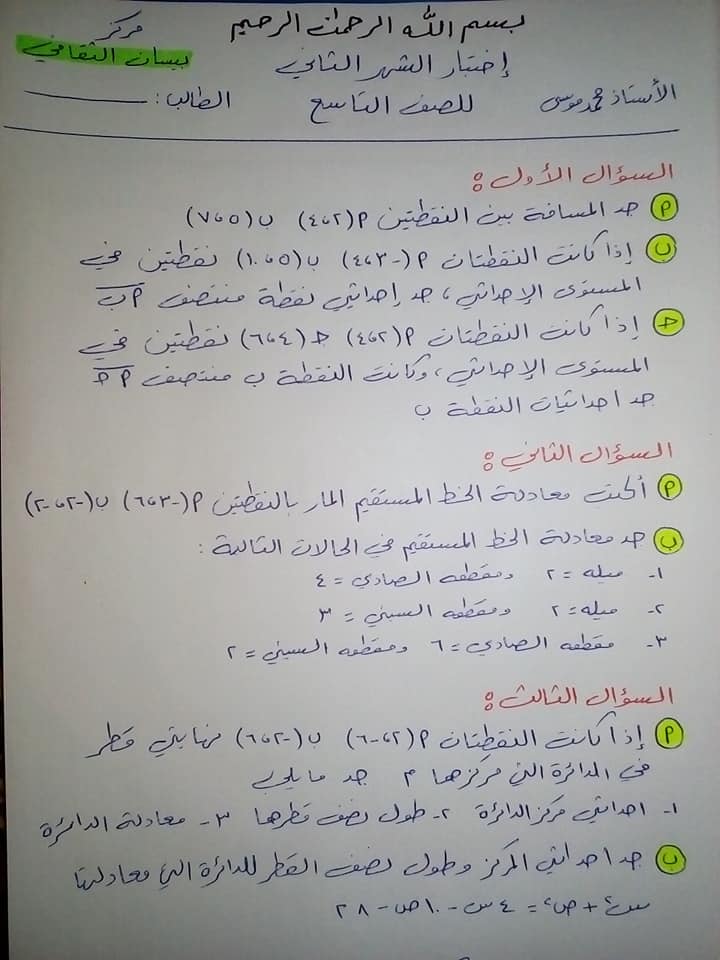 بسم الله الرحمن الرحيم
مركز
بيسان الثقافي
إختبار الشهر الثاني
الأستاذ محمد موسى للصف التاسع الطالب: ـــــــــ
السؤال الأول:
أ جد المسافة بين النقطتين أ(٢،٤) ب(٥،٧)
ب إذا كانت النقطتان أ(-٣،٤) ب(٥،١٠) نقطتين في
المستوى الإحداثي، جد إحداثيي نقطة منتصف أب
جـ إذا كانت النقطتان أ(٢،٤) جـ(٤،٦) نقطتين في
المستوى الإحداثي، وكانت النقطة ب منتصف أجـ
جد احداثيات النقطة ب
السؤال الثاني:
أ أكتب معادلة الخط المستقيم المار بالنقطتين أ(-٣،٦) ب(-٢،-٢)
ب جد معادلة الخط المستقيم في الحالات التالية:
١- ميله = ٢ ومقطعه الصادي = ٤
٢- ميله = ٢ ومقطعه السيني = ٣
٣- مقطعه الصادي = ٦ ومقطعه السيني = ٢
السؤال الثالث:
أ إذا كانت النقطتان أ(٢،-٦) ب(-٢،٦) نهايتي قطر
في الدائرة التي مركزها م جد مايلي
١- احداثيي مركز الدائرة ٢- طول نصف قطرها ٣- معادلة الدائرة
ب جد احداثيي المركز وطول نصف القطر للدائرة التي معادلتها
س² + ص² = ٤س - ١٠ص - ٢٨